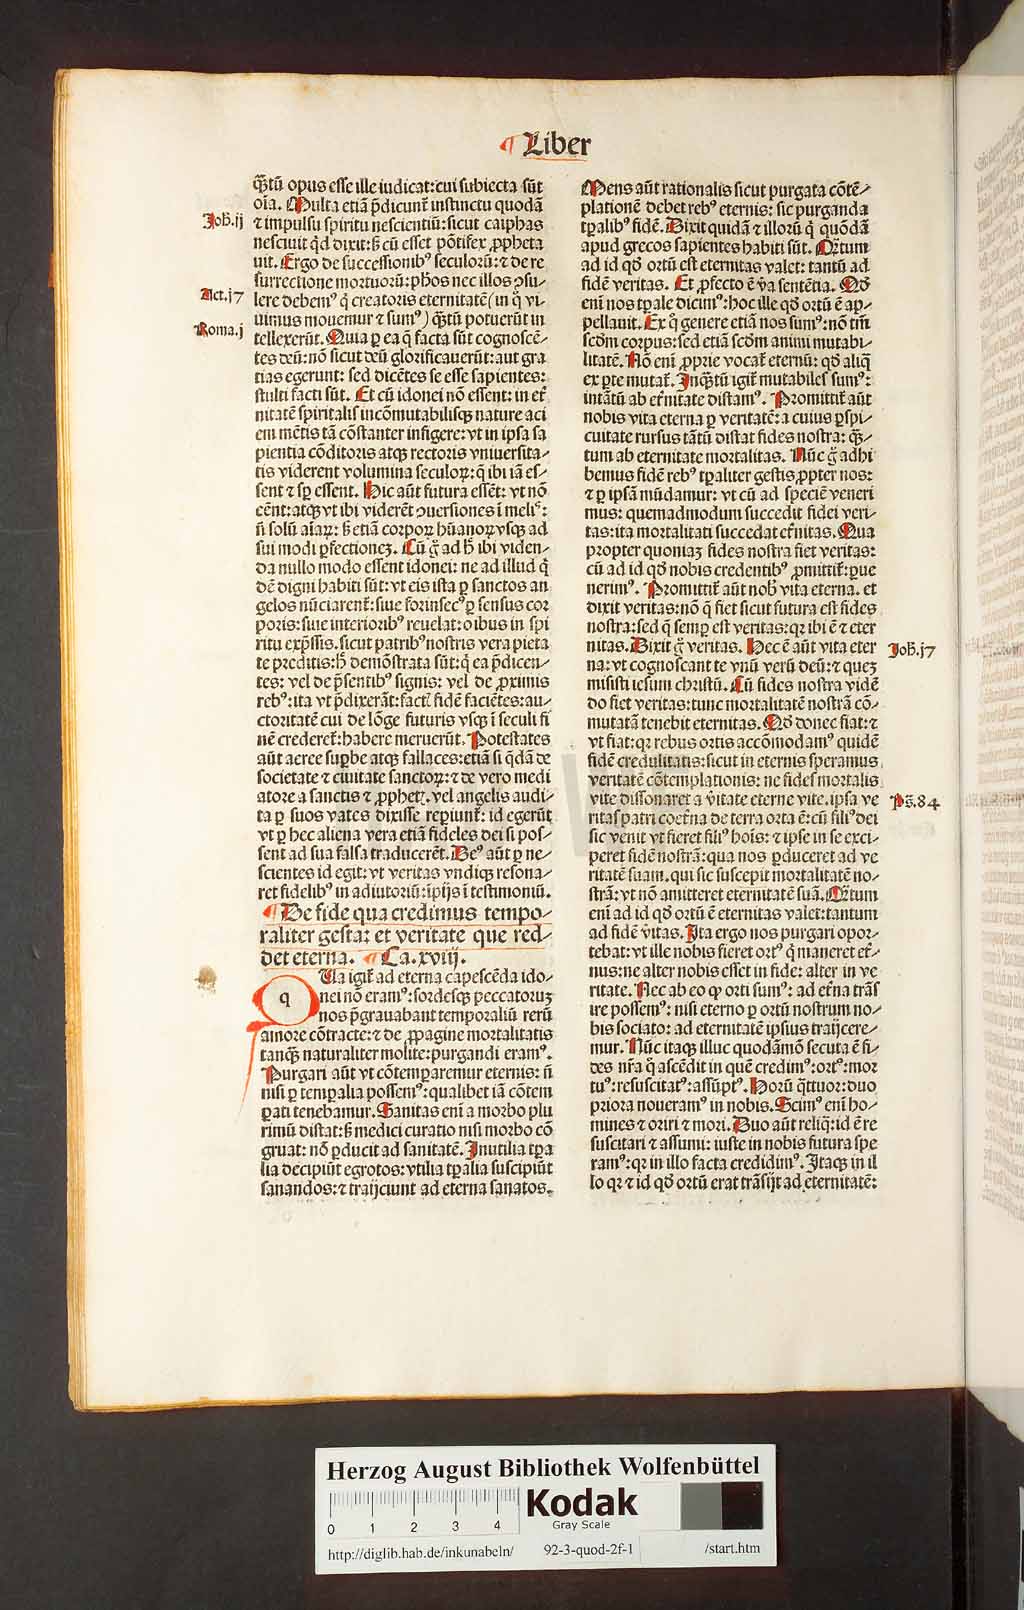 ¶ Liber
q̄tū opus esse ille iudicat: cui subiecta sūt
oīa. Multa etiā p̄dicunt̃ instinctu quodā
Joh̄.ij
⁊ impulsu spiritu nescientiū: sicut caiphas
nesciuit qd̄ dixit: s̄ cū esset pōtifex ꝓpheta
uit. Ergo de successionibꝰ seculoꝝ: ⁊ de re
surrectione mortuoꝝ: ph̄os nec illos ↄsu/
Act.17
lere debemꝰ q̇ creatoris eternitatē (in q̇ vi/
uimus mouemur ⁊ sumꝰ) q̄tū potuerūt in
Roma.j
tellexerūt. Quia ꝑ ea q̄ facta sūt cognoscē/
tes deū: nō sicut deū glorificauerūt: aut gra
tias egerunt: sed dicētes se esse sapientes:
stulti facti sūt. Et cū idonei nō essent: in et̄
nitatē spiritalis incōmutabilisqꝫ nature aci
em mētis tā cōstanter infigere: vt in ipsa sa
pientia cōditoris atqꝫ rectoris vniuersita/
tis viderent volumina seculoꝝ: q̄ ibi iā es/
sent ⁊ sp̄ essent. Hic aūt futura essēt: vt nō
eēnt: atqꝫ vt ibi viderēt ↄuersiones ī meliꝰ:
n̄ solū aīaꝝ: s̄ etiā corpoꝝ hūanoꝝ vsqꝫ ad
sui modi ꝑfectioneꝫ. Cū g̊ ad h̄ ibi viden/
da nullo modo essent idonei: ne ad illud q̇
dē digni habiti sūt: vt eis ista ꝑ sanctos an
gelos nūciarent̃: siue forinsecꝰ ꝑ sensus cor
poris: siue interioribꝰ reuelat: oibus in spi
ritu exp̄ssis. sicut patribꝰ nostris vera pieta
te preditis: h̄ demōstrata sūt: q̇ ea p̄dicen/
tes: vel de p̄sentibꝰ signis: vel de ꝓximis
rebꝰ: ita vt p̄dixerāt: factꝭ fidē faciētes: au/
ctoritatē cui de lōge futuris vsqꝫ ī seculi fi
nē crederet̃: habere meruerūt. Potestates
aūt aeree supbe atqꝫ fallaces: etiā si q̇dā de
societate ⁊ ciuitate sanctoꝝ: ⁊ de vero medi
atore a sanctis ⁊ ꝓphetꝭ. vel angelis audi/
ta ꝑ suos vates dixisse reꝑiunt̃: id egerūt
vt ꝑ hec aliena vera etiā fideles dei si pos/
sent ad sua falsa traducerēt. Deꝰ aūt ꝑ ne/
scientes id egit: vt veritas vndiqꝫ resona/
ret fidelibꝰ in adiutoriū: īpijs ī testimoniū.
¶ De fide qua credimus tempo/
raliter gestaꝫ et veritate que red/
det eterna. ¶ Ca.xviij.
q
Uia igit̃ ad eterna capescēda ido/
nei nō eramꝰ: sordesqꝫ peccatoruꝫ
nos p̄grauabant temporaliū rerū
amore cōtracte: ⁊ de ꝓpagine mortalitatis
tanqꝫ naturaliter molite: purgandi eramꝰ.
Purgari aūt vt cōtemperaremur eternis: n̄
nisi ꝑ tempalia possemꝰ: qualibet iā cōtem
ꝑati tenebamur. Sanitas enī a morbo plu
rimū distat: s̄ medici curatio nisi morbo cō
gruat: nō ꝑducit ad sanitatē. Inutilia tꝑa
lia decipiūt egrotos: vtilia tꝑalia suscipiūt
sanandos: ⁊ traijciunt ad eterna sanatos.
Mens aūt rationalis sicut purgata cōtē/
plationē debet rebꝰ eternis: sic purganda
tꝑalibꝰ fidē. Dixit quidā ⁊ illorū q̇ quōdā
apud grecos sapientes habiti sūt. Q̄tum
ad id qd̄ ortū est eternitas valet: tantū ad
fidē veritas. Et ꝓfecto ē v̄a sentētia. Qd̄
enī nos tꝑale dicimꝰ: hoc ille qd̄ ortū ē ap/
pellauit. Ex q̊ genere etiā nos sumꝰ: nō tm̄
scdm̄ corpus: sed etiā scdm̄ animi mutabi/
litatē. Nō enī ꝓprie vocat̃ eternū: qd̄ aliq̄
ex ꝑte mutat̃. Inq̄tū igit̃ mutabiles sumꝰ:
intātū ab et̄nitate distamꝰ. Promittit̃ aūt
nobis vita eterna ꝑ veritatē: a cuius ꝑspi/
cuitate rursus tātū distat fides nostra: q̄/
tum ab eternitate mortalitas. Nūc g̊ adhi
bemus fidē rebꝰ tꝑaliter gestis ꝓpter nos:
⁊ ꝑ ipsā mūdamur: vt cū ad speciē veneri
mus: quemadmodum succedit fidei veri/
tas: ita mortalitati succedat et̄nitas. Qua
propter quoniaꝫ fides nostra fiet veritas:
cū ad id qd̄ nobis credentibꝰ ꝓmittit̃: ꝑue
nerimꝰ. Promittit̃ aūt nob̄ vita eterna. et
dixit veritas: nō q̄ fiet sicut futura est fides
nostra: sed q̄ semꝑ est veritas: qꝛ ibi ē ⁊ eter
Joh̄.17
nitas. Dixit g̊ veritas. Hec ē aūt vita eter
na: vt cognoscant te vnū verū deū: ⁊ queꝫ
misisti iesum christū. Cū fides nostra vidē
do fiet veritas: tunc mortalitatē nostrā cō/
mutatā tenebit eternitas. Qd̄ donec fiat: ⁊
vt fiat: qꝛ rebus ortis accōmodamꝰ quidē
fidē credulitatis: sicut in eternis speramus
veritatē cōtemplationis: ne fides mortalis
Ps̄.84
vite dissonaret a v̄itate eterne vite. ipsa ve
ritas patri coet̄na de terra orta ē: cū filiꝰ dei
sic venit vt fieret filiꝰ hoīs: ⁊ ipse in se exci/
peret fidē nostrā: qua nos ꝑduceret ad ve
ritatē suam. qui sic suscepit mortalitatē no/
strā: vt nō amitteret eternitatē suā. Q̄tum
enī ad id qd̄ ortū ē eternitas valet: tantum
ad fidē v̄itas. Ita ergo nos purgari opor/
tebat: vt ille nobis fieret ortꝰ q̇ maneret et̄/
nus: ne alter nobis esset in fide: alter in ve
ritate. Nec ab eo ꝙ orti sumꝰ: ad et̄na trās
ire possemꝰ: nisi eterno ꝑ ortū nostrum no/
bis sociato: ad eternitatē ipsius traijcere/
mur. Nūc itaqꝫ illuc quodāmō secuta ē fi/
des nr̄a q̊ ascēdit in quē credimꝰ: ortꝰ: mor
tuꝰ: resuscitatꝰ: assūptꝰ. Horū q̄ttuor: duo
priora noueramꝰ in nobis. Scimꝰ enī ho/
mines ⁊ oriri ⁊ mori. Duo aūt reliq̄: id ē re
suscitari ⁊ assumi: iuste in nobis futura spe
ramꝰ: qꝛ in illo facta credidimꝰ. Itaqꝫ in il
lo qꝛ ⁊ id qd̄ ortū erat trāsijt ad eternitatē:
Herzog August Bibliothek Wolfenbüttel
0 1 2 3 4
Kodak
Gray Scale
http://diglib.hab.de/inkunabeln/ 92-3-quod-2f-1 /start.htm